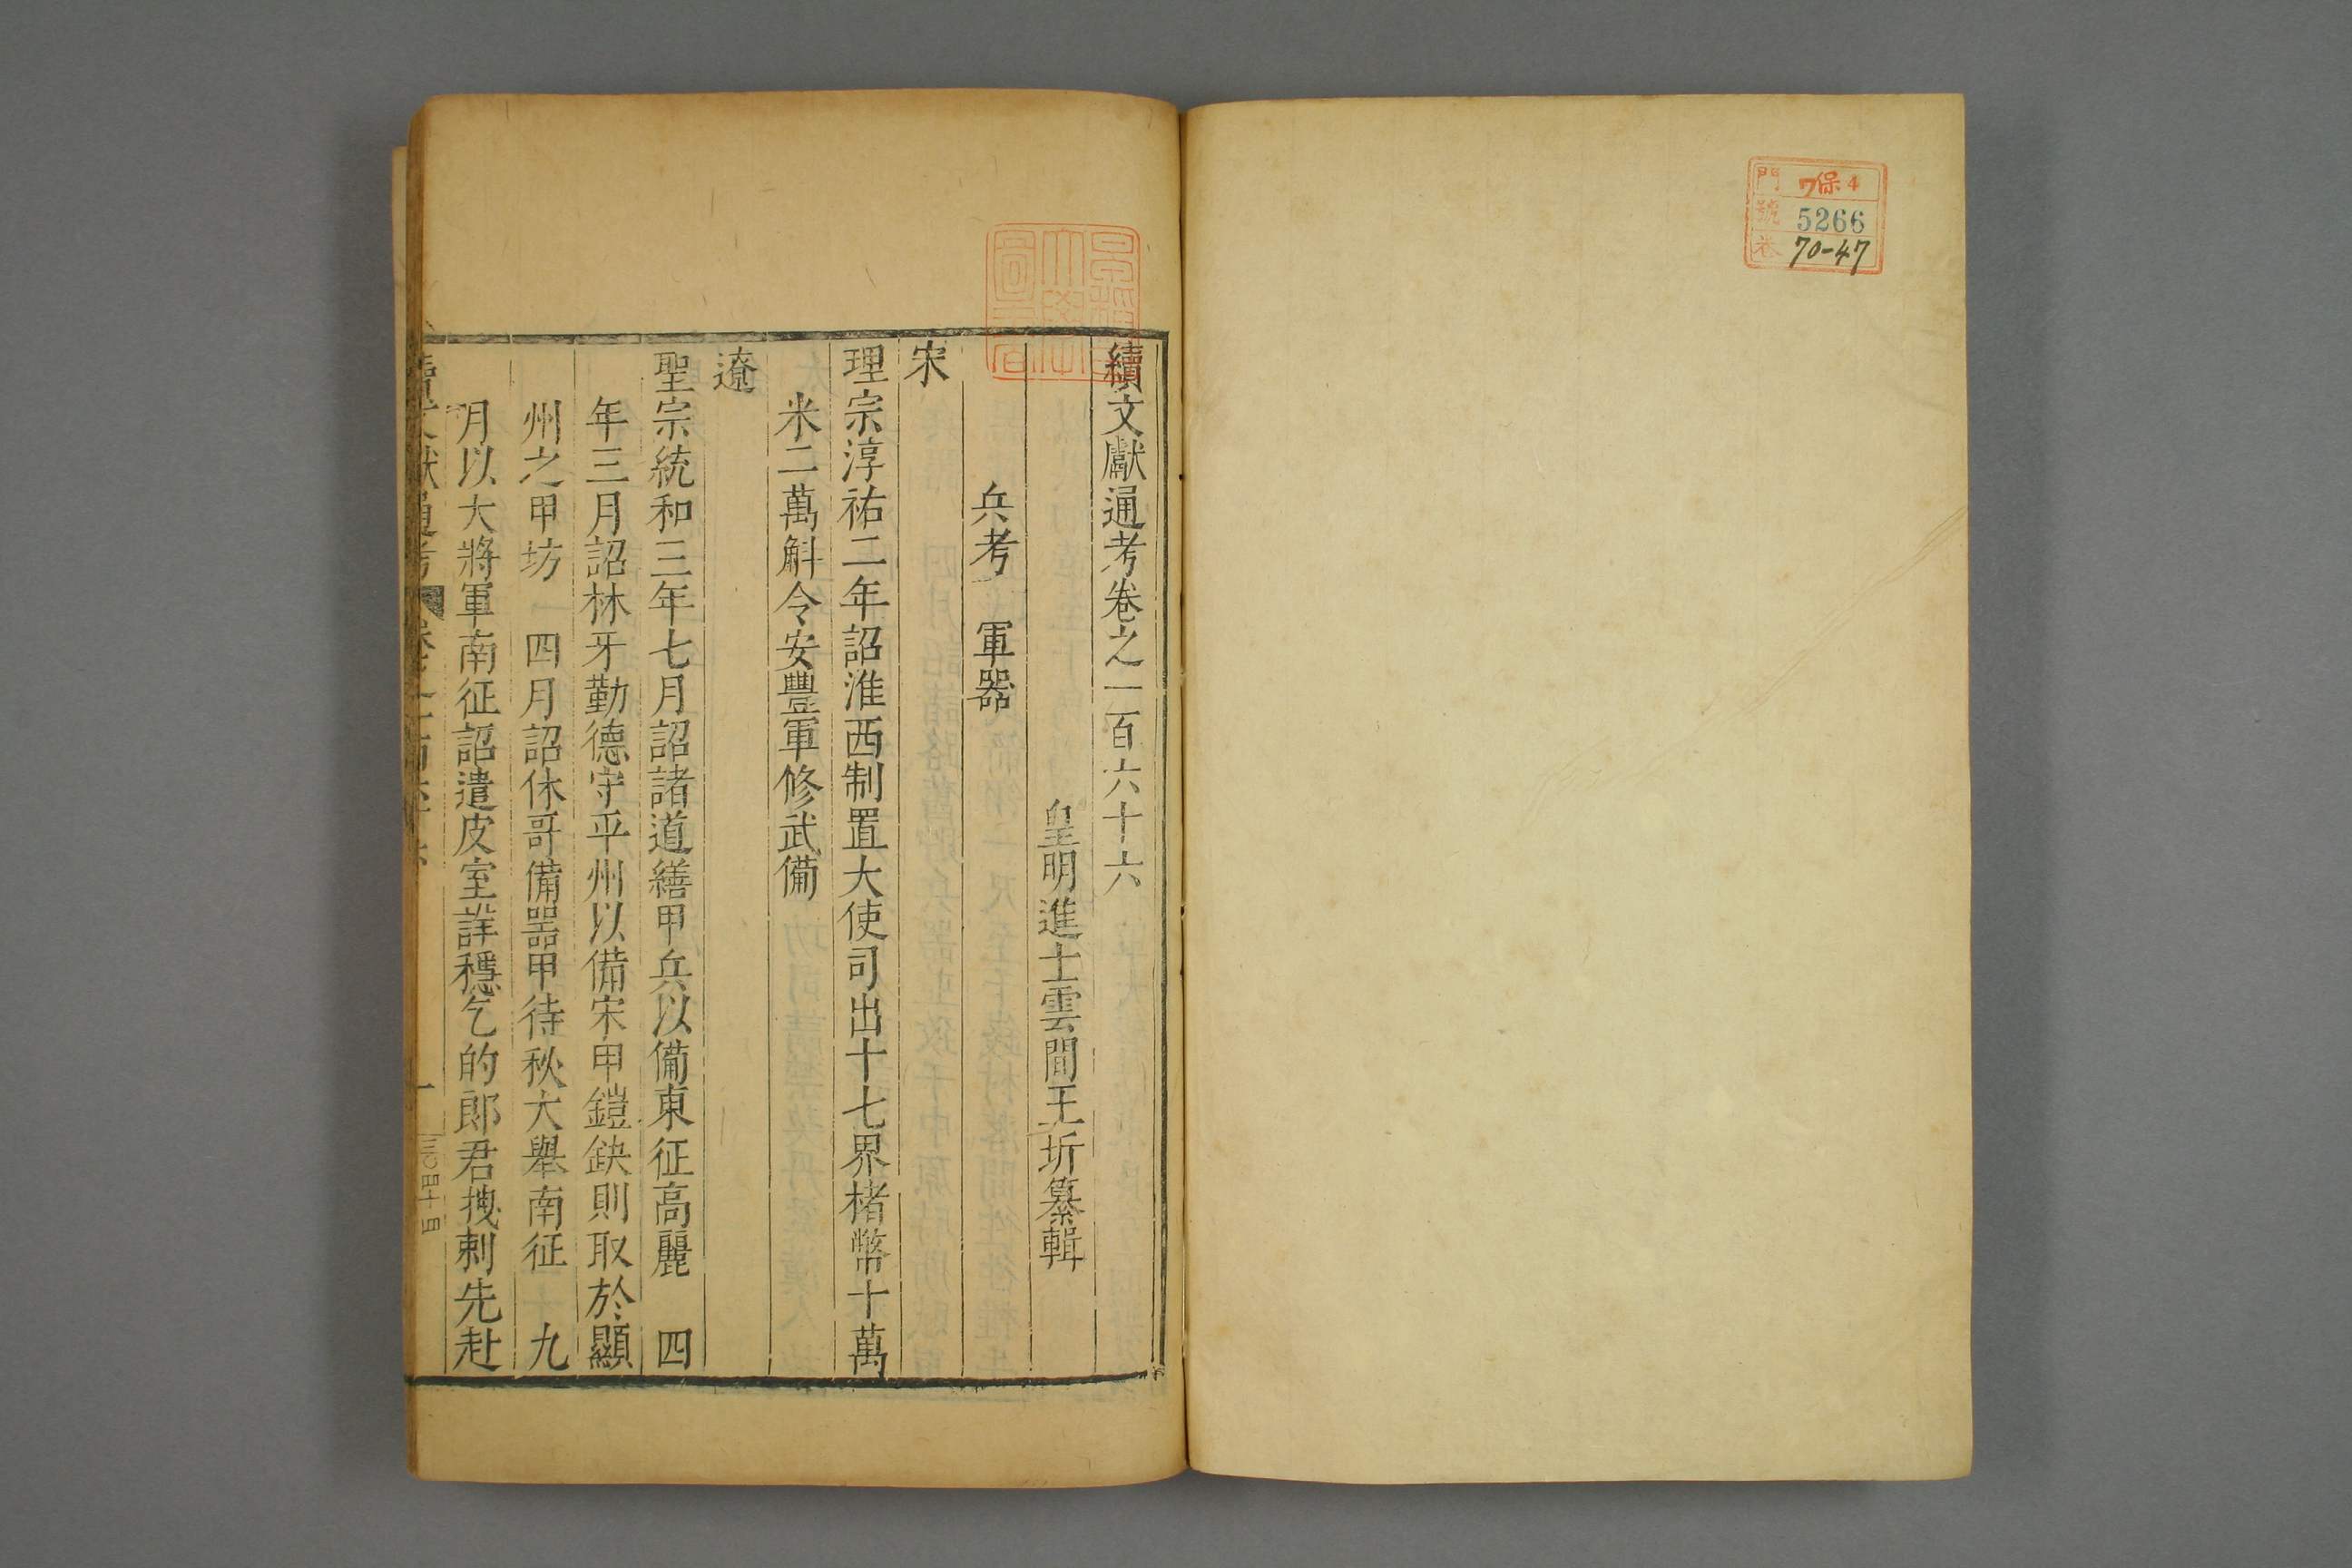 門 7保4
號 5266
卷 70-47
續文獻通考卷之一百六十六
皇明進士雲間王圻纂輯
兵考 軍器
宋
理宗淳祐二年詔淮西制置大使司出十七界楮幣十萬
米二萬斛令安豐軍修武備
遼
聖宗統和三年七月詔諸道繕甲兵以備東征高麗 四
年三月詔林牙勤德守平州以備宋甲鎧缺則取於顯
州之甲坊 四月詔休哥備器甲待秋大舉南征 九
月以大將軍南征詔遣皮室詳穩乞的郎君拽剌先赴